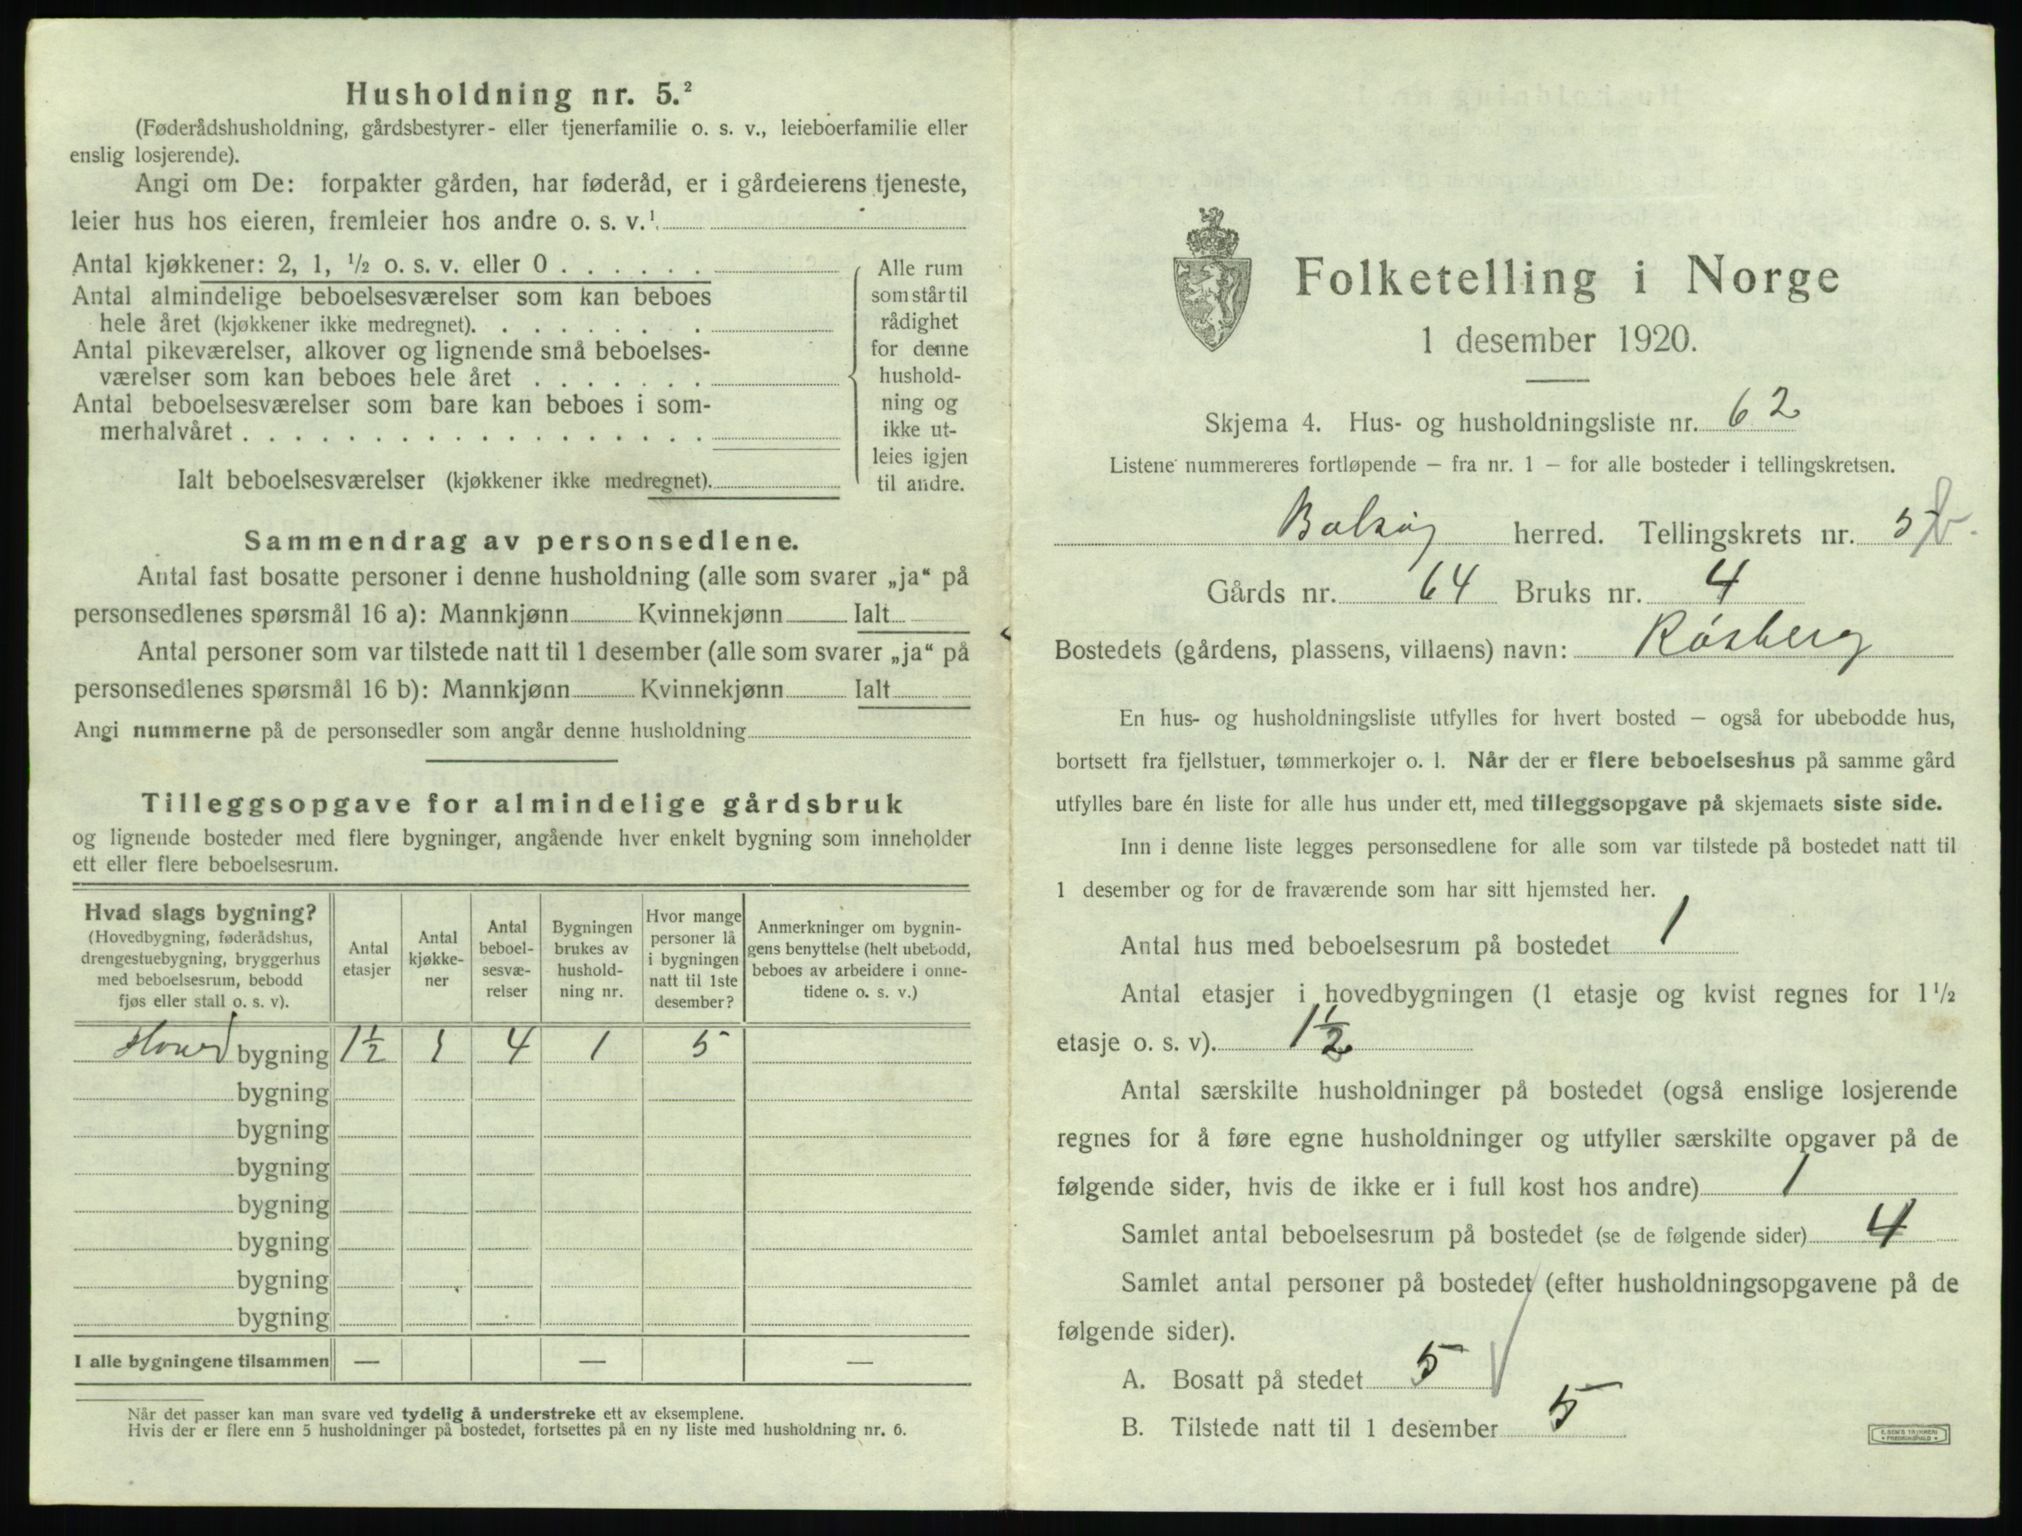 Husholdning nr. 5.²
(Føderådshusholdning, gårdsbestyrer- eller tjenerfamilie o. s. v., leieboerfamilie eller
enslig losjerende).
Angi om De: forpakter gården, har føderåd, er i gårdeierens tjeneste,
leier hus hos eieren, fremleier hos andre o. s. v.¹
Antal kjøkkener: 2, 1, ½ o. s. v. eller 0
Antal almindelige beboelsesværelser som kan beboes
hele året (kjøkkener ikke medregnet).
Antal pikeværelser, alkover og lignende små beboelses-
værelser som kan beboes hele året
Antal beboelsesværelser som bare kan beboes i som-
merhalvåret
Ialt beboelsesværelser (kjøkkener ikke medregnet).
Alle rum
som står til
rådighet
for denne
hushold-
ning og
ikke ut-
leies igjen
til andre.
Sammendrag av personsedlene.
Antal fast bosatte personer i denne husholdning (alle som svarer „ja“ på
personsedlenes spørsmål 16 a): Mannkjønn Kvinnekjønn Ialt
Antal personer som var tilstede natt til 1 desember (alle som svarer „ja“ på
personsedlenes spørsmål 16 b): Mannkjønn Kvinnekjønn Ialt
Angi nummerne på de personsedler som angår denne husholdning
Tilleggsopgave for almindelige gårdsbruk
og lignende bosteder med flere bygninger, angående hver enkelt bygning som inneholder
ett eller flere beboelsesrum.
Hvad slags bygning?
(Hovedbygning, føderådshus,
drengestuebygning, bryggerhus
med beboelsesrum, bebodd
fjøs eller stall o. s. v).
Antal
etasjer
Antal
kjøkke-
ner
Antal
beboel-
sesvæ-
relser
Bygningen
brukes av
hushold-
ning nr.
Hvor mange
personer lå
i bygningen
natt til 1ste
desember?
Anmerkninger om bygnin-
gens benyttelse (helt ubebodd,
beboes av arbeidere i onne-
tidene o. s. v.)
Hoved bygning 1½ 1 4 1 5
bygning
bygning
bygning
bygning
bygning
bygning
bygning
I alle bygningene tilsammen — — —
Når det passer kan man svare ved tydelig å understreke ett av eksemplene.
Hvis der er flere enn 5 husholdninger på bostedet, fortsettes på en ny liste med husholdning nr. 6.
Folketelling i Norge
1 desember 1920.
Skjema 4. Hus- og husholdningsliste nr. 62
Listene nummereres fortløpende — fra nr. 1 — for alle bosteder i tellingskretsen.
Bolsøy herred. Tellingskrets nr. 5
Gårds nr. 64 Bruks nr. 4
Bostedets (gårdens, plassens, villaens) navn: Røsberg
En hus- og husholdningsliste utfylles for hvert bosted — også for ubebodde hus,
bortsett fra fjellstuer, tømmerkojer o. l. Når der er flere beboelseshus på samme gård
utfylles bare én liste for alle hus under ett, med tilleggsopgave på skjemaets siste side.
Inn i denne liste legges personsedlene for alle som var tilstede på bostedet natt til
1 desember og for de fraværende som har sitt hjemsted her.
Antal hus med beboelsesrum på bostedet 1
Antal etasjer i hovedbygningen (1 etasje og kvist regnes for 1½
etasje o. s. v). 1½
Antal særskilte husholdninger på bostedet (også enslige losjerende
regnes for å føre egne husholdninger og utfyller særskilte opgaver på de
følgende sider, hvis de ikke er i full kost hos andre) 1
Samlet antal beboelsesrum på bostedet (se de følgende sider) 4
Samlet antal personer på bostedet (efter husholdningsopgavene på de
følgende sider).
A. Bosatt på stedet 5
B. Tilstede natt til 1 desember 5